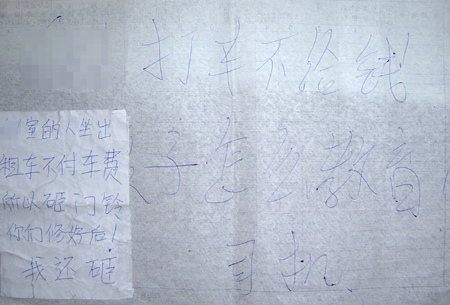 打车不给钱
子怎么教育
司机
室的人坐出
租车不付车费
所以砸门铃
你们修好后！
我还砸